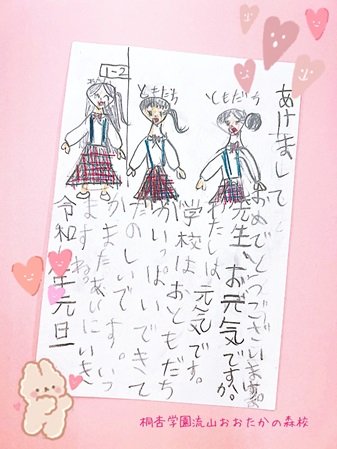 あけまして
おめでとうございます。
先生、お元気ですか。
わたしは元気です。
学校はおともだち
がいっぱいできて
たのしいです。いつ
かまたあいにいき
ますね。
令和 年元旦
1-2
ともだち
ともだち
桐杏学園流山おおたかの森校